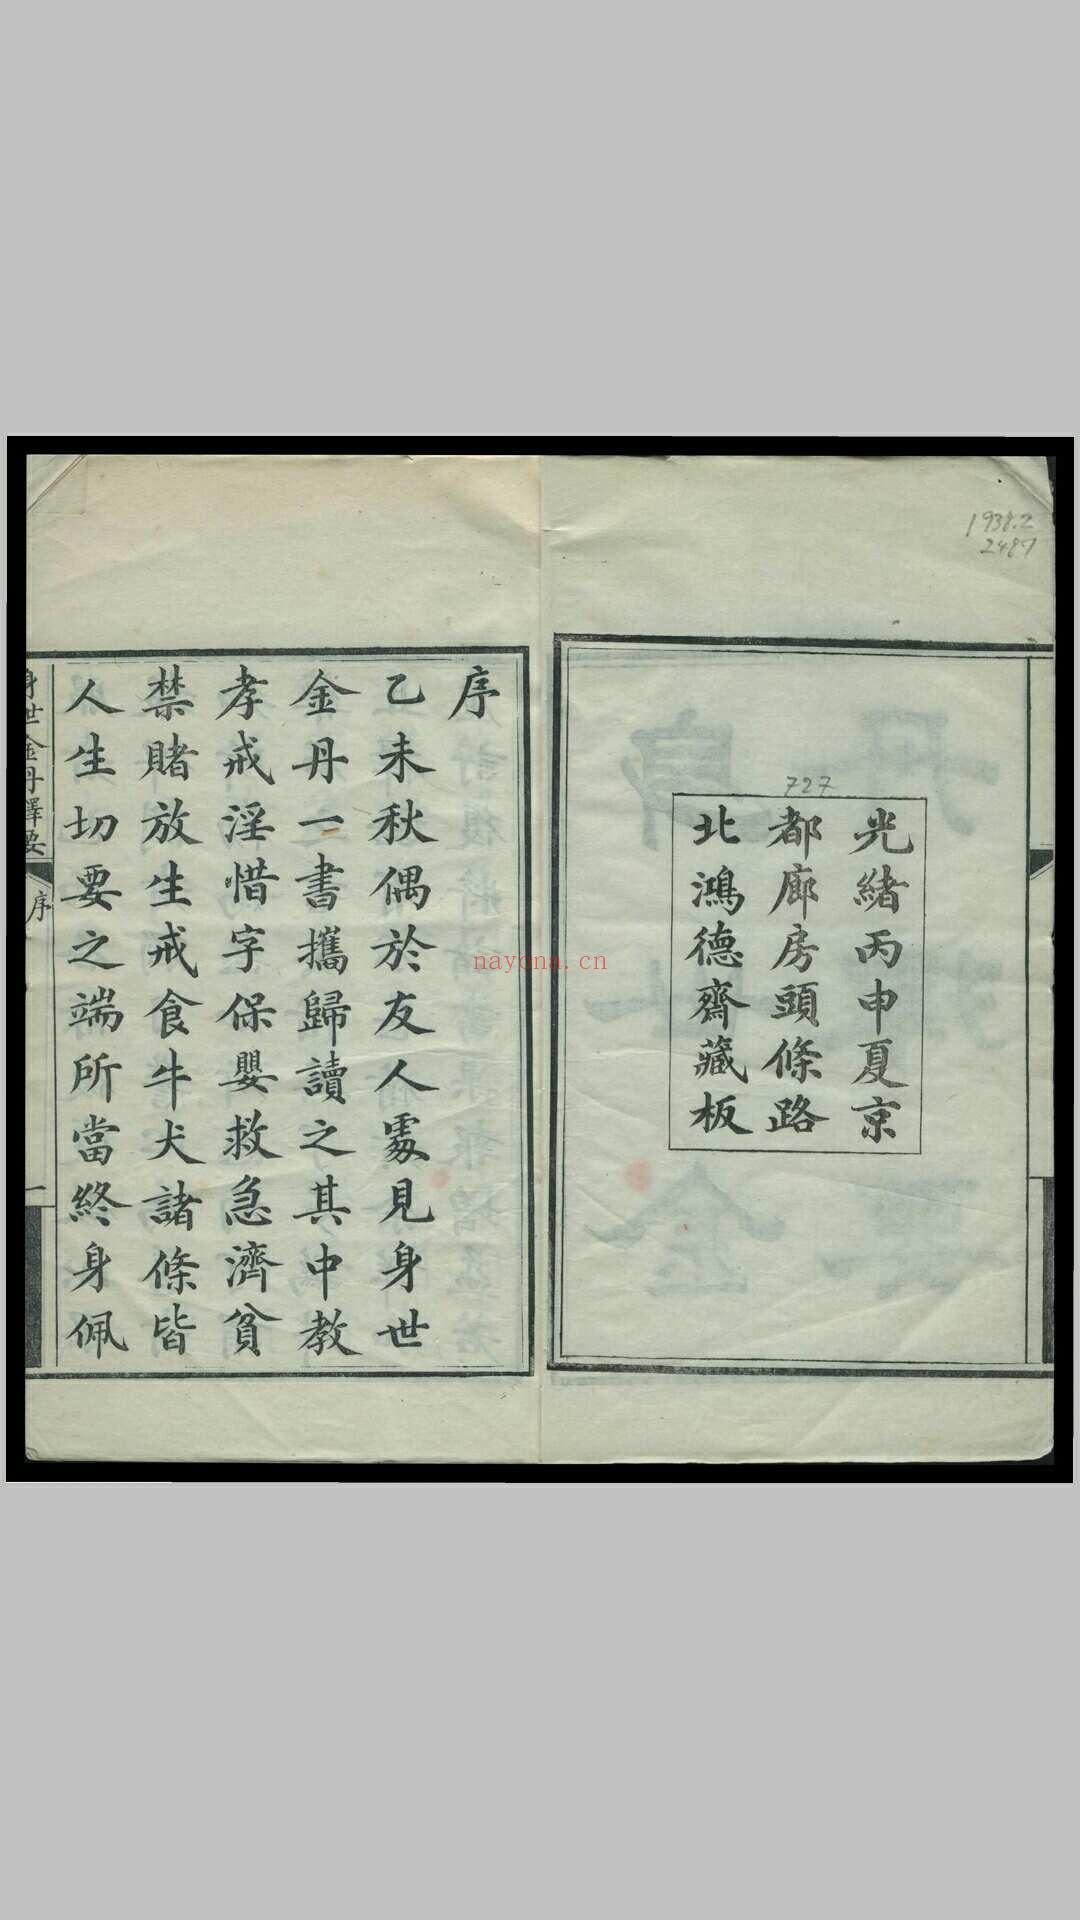 1938.2
2487
727
光緒丙申夏京
都廊房頭條路
北鴻德齋藏板
序
乙未秋偶於友人處見身世
金丹一書攜歸讀之其中教
孝戒淫惜字保嬰救急濟貧
禁賭放生戒食牛犬諸條皆
人生切要之端所當終身佩
身世金丹擇要
序
一
nayona.cn